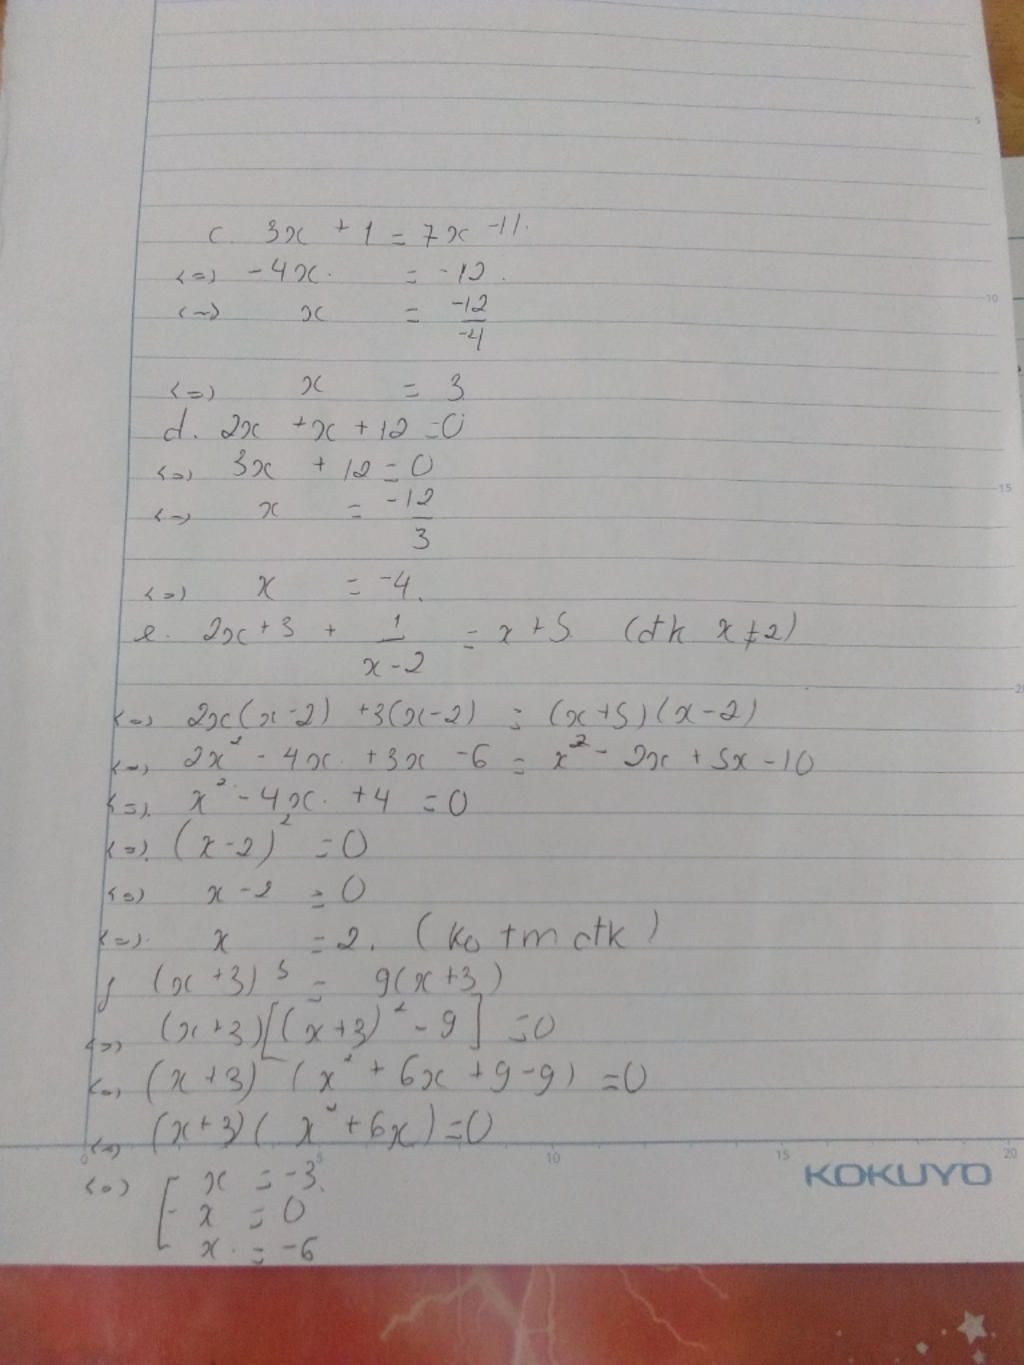 c. 3x + 1 = 7x - 11.
<=> -4x. = -12.
<=> x = -12/-4
<=> x = 3
d. 2x + x + 12 = 0
<=> 3x + 12 = 0
<=> x = -12/3
<=> x = -4.
e. 2x + 3 + 1/(x - 2) = x + 5. (đk x ≠ 2)
<=> 2x(x - 2) + 3(x - 2) = (x + 5)(x - 2)
<=> 2x² - 4x + 3x - 6 = x² - 2x + 5x - 10
<=> x² - 4x + 4 = 0
<=> (x - 2)² = 0
<=> x - 2 = 0
<=> x = 2. (ko tm đtk)
f (x + 3)³ = 9(x + 3)
<=> (x + 3)[(x + 3)² - 9] = 0
<=> (x + 3) (x² + 6x + 9 - 9) = 0
<=> (x + 3)(x² + 6x) = 0
0 5 10 15 20
KOKUYO
<=> [ x = -3.
x = 0
x = -6
5
10
15
20